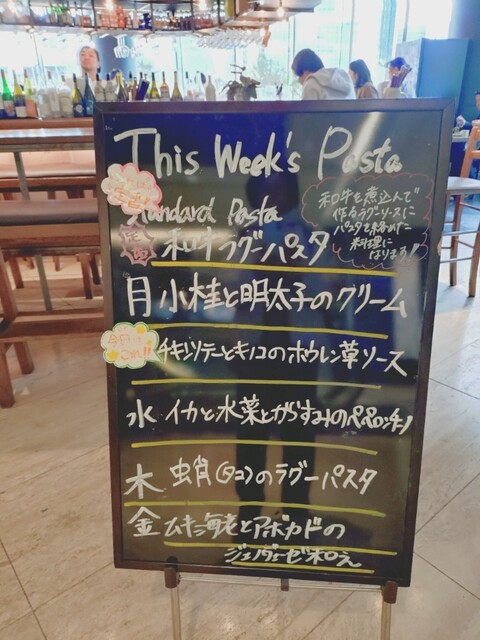 This Week's Pasta
定番!
Standard Pasta
和牛ラグーパスタ
和牛を煮込んで
作るラグーソースに
パスタを絡めた
料理に
なります!!
月 小柱と明太子のクリーム
今日は
これ!!
チキンソテーとキノコのホウレン草ソース
水 イカと水菜とからすみのペペロンチーノ
木 蛸(タコ)のラグーパスタ
金 ムキ海老とアボカドの
ジェノヴェーゼ和え